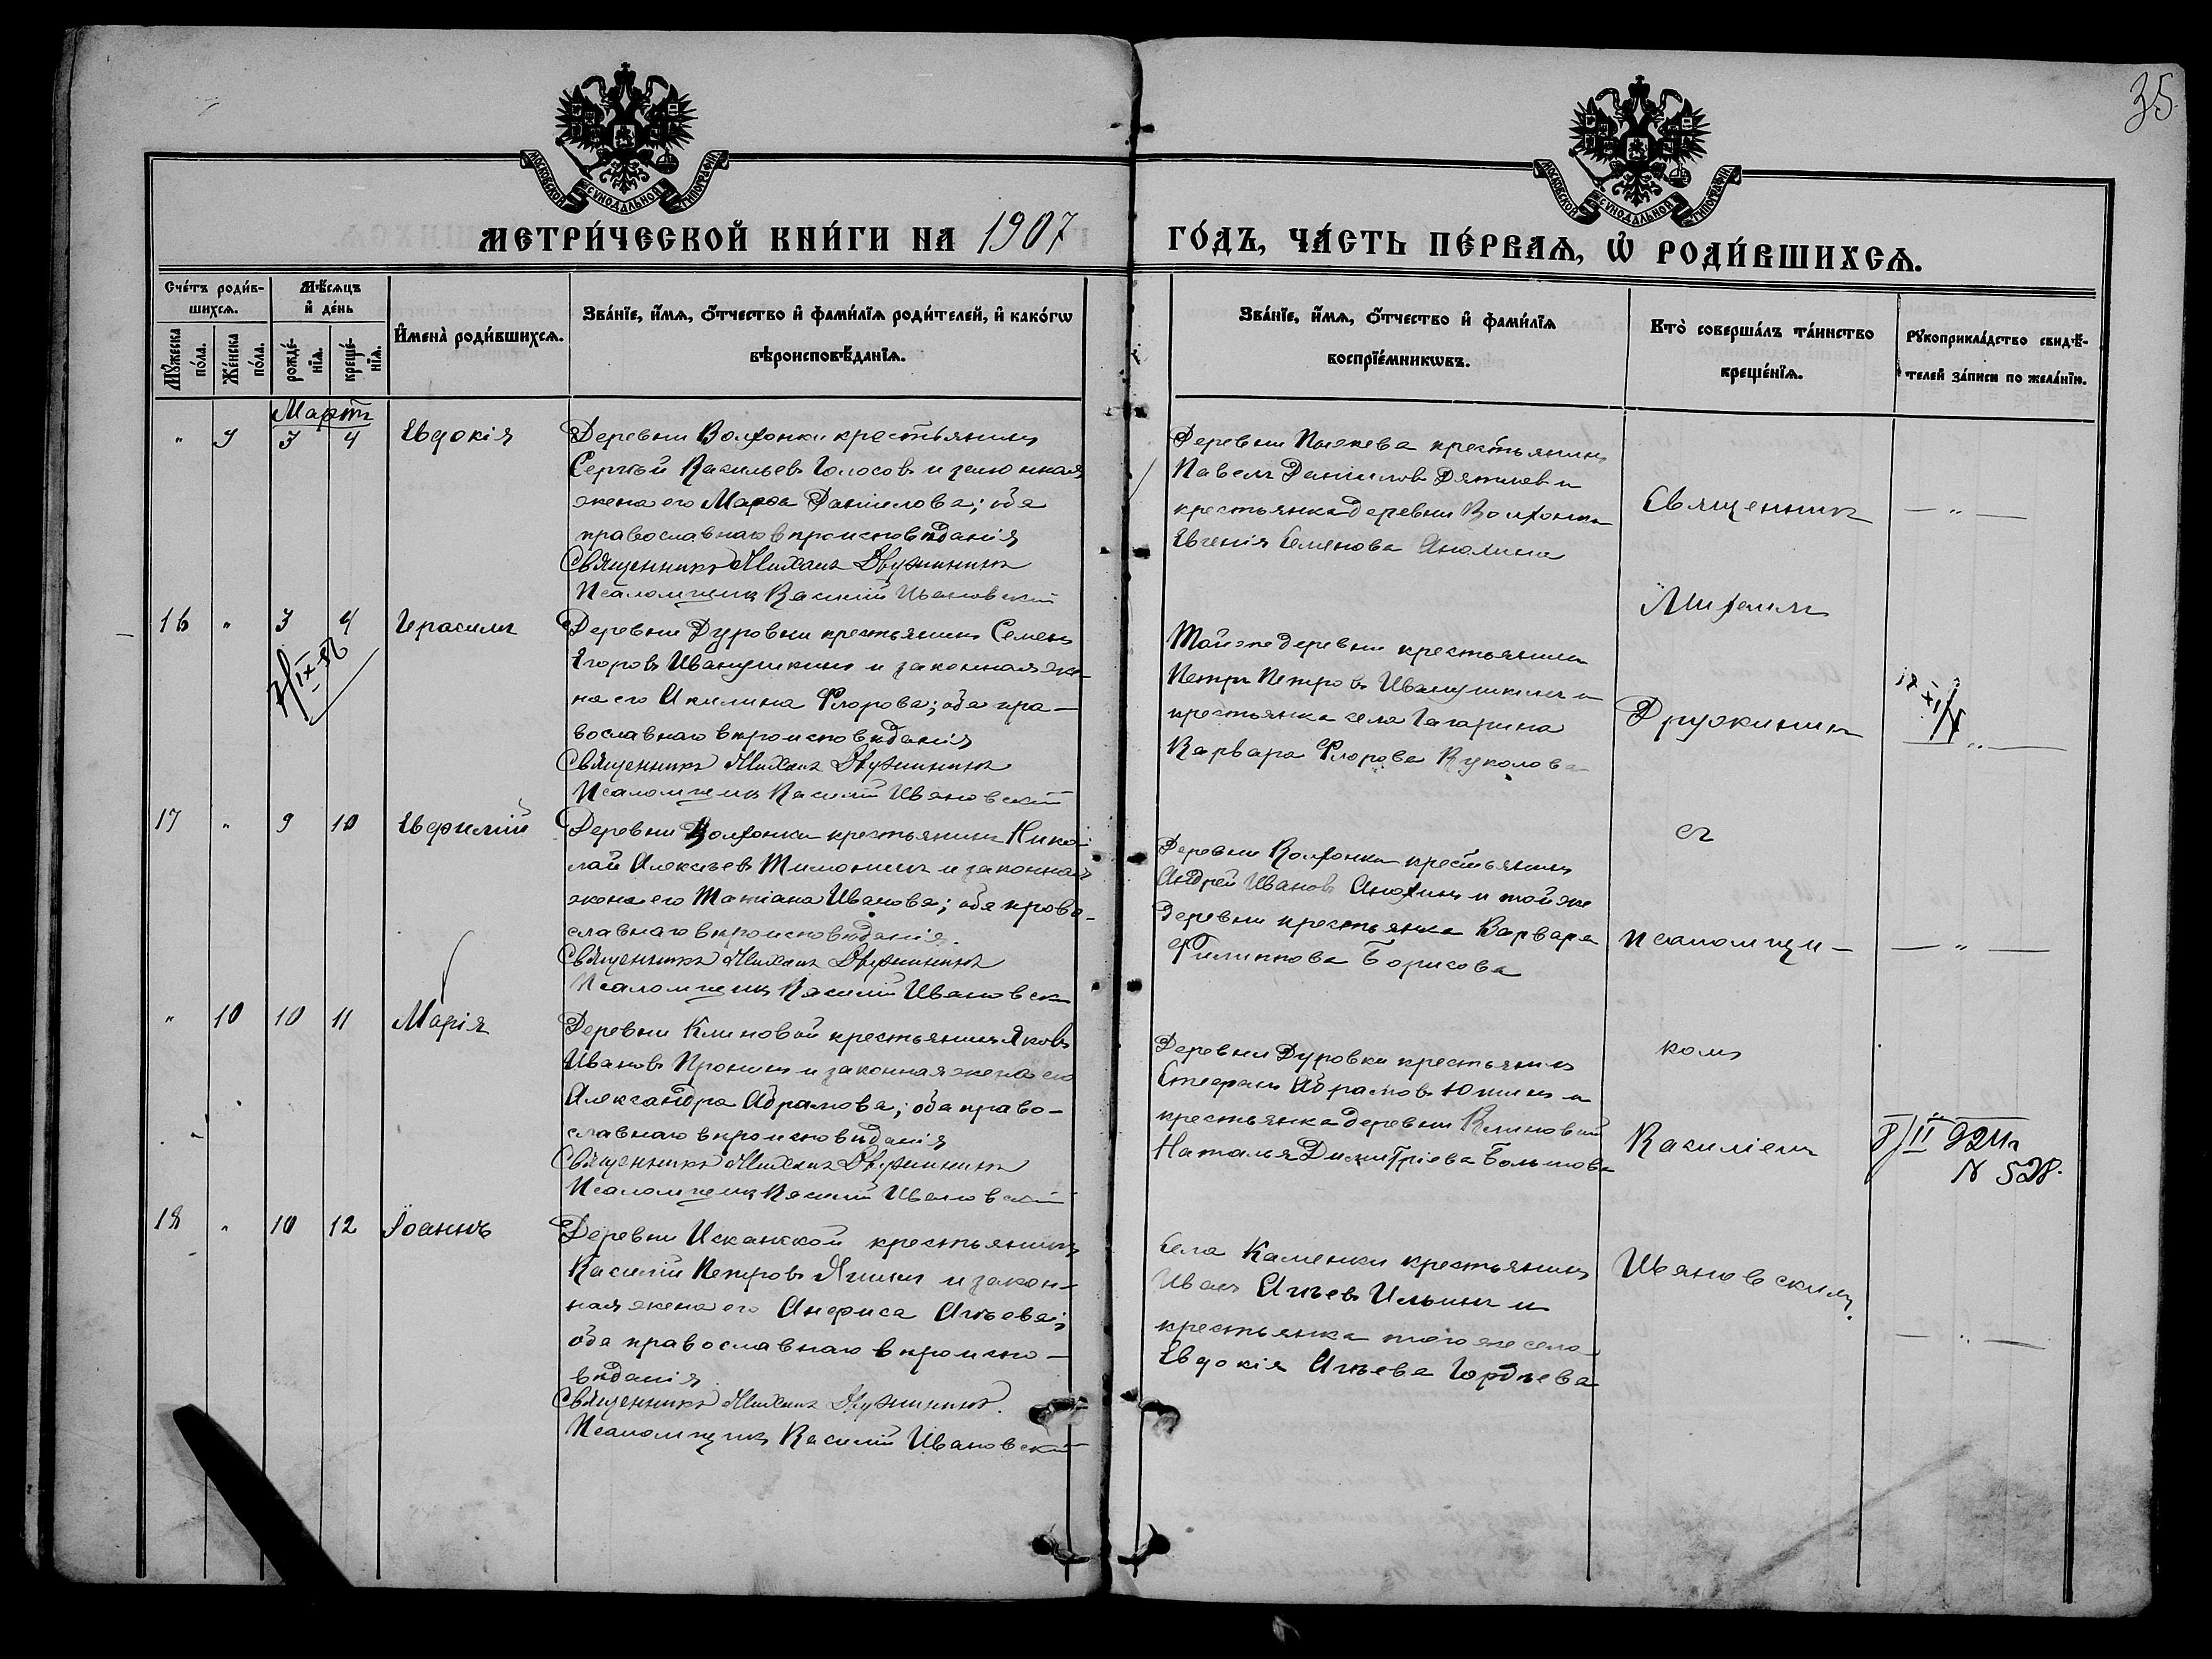 35
МОСКОВСКОЙ СѴНОДАЛЬНОЙ ТИПОГРАФІИ
МОСКОВСКОЙ СѴНОДАЛЬНОЙ ТИПОГРАФІИ
МЕТРИ́ЧЕСКОЙ КНИ́ГИ НА 1907 ГО́ДЪ, ЧА́СТЬ ПЕ́РВАѦ, Ѡ҆ РОДИ́ВШИХСѦ.
Сче́тъ роди́в-
шихсѧ.
Мꙋ́жеска по́ла.
Же́нска по́ла.
Мѣ́сѧцъ
и҆ де́нь
рожде́-
нїѧ.
креще́-
нїѧ.
И҆мена̀ роди́вшихсѧ.
Зва́нїе, и҆́мѧ, ѻ҆́тчество и҆ фами́лїѧ роди́телей, и҆ како́гѡ
вѣроисповѣ́данїѧ.
Зва́нїе, и҆́мѧ, ѻ҆́тчество и҆ фами́лїѧ
воспрїе́мникѡвъ.
Кто̀ соверша́лъ та́инство
креще́нїѧ.
Рꙋкоприкла́дство свидѣ́-
телей за́писи по жела́нїю.
Мартъ
" 9 3 4 Евдокія
Деревни Волхонки крестьянинъ
Сергѣй Васильевъ Голосовъ и законная
жена его Марѳа Даніилова; оба
православнаго вѣроисповѣданія
Священникъ Михаилъ Дружининъ
Псаломщикъ Василій Ивановскій
Деревни крестьянинъ
Павелъ Даніиловъ и
крестьянка деревни Волхонки
Евгенія Семенова Анохина
— " —
16 " 3 4 Герасимъ
Деревни Дуровки крестьянинъ Семенъ
Егоровъ Иванушкинъ и законная же-
на его Акилина Флорова; оба пра-
вославнаго вѣроисповѣданія
Священникъ Михаилъ Дружининъ
Псаломщикъ Василій Ивановскій
Той же деревни крестьянинъ
Петръ Петровъ Иванушкинъ и
крестьянка села Гагарина
Варвара Флорова Куколова
— " —
17 " 9 10 Евфимій
Деревни Волхонки крестьянинъ Нико-
лай Алексѣевъ Тимонинъ и законная
жена его Татіана Иванова; оба право-
славнаго вѣроисповѣданія.
Священникъ Михаилъ Дружининъ
Псаломщикъ Василій Ивановск
Деревни Волхонки крестьянинъ
Андрей Ивановъ Анохинъ и той же
деревни крестьянка Варвара
Филиппова Борисова
— " —
" 10 10 11 Марія
Деревни Климовой крестьянинъ Яковъ
Ивановъ Пронинъ и законная жена его
Александра Абрамова; оба право-
славнаго вѣроисповѣданія
Священникъ Михаилъ Дружининъ
Псаломщикъ Василій Ивановскій
Деревни Дуровки крестьянинъ
Стефанъ Абрамовъ Юшинъ и
крестьянка деревни Климовой
Наталья Димитріева Болтова
8/II
N 528.
18 " 10 12 Іоаннъ
Деревни Исканской крестьянинъ
Василій Петровъ Яшинъ и закон-
ная жена его Анфиса Агѣева;
оба православнаго вѣроиспо-
вѣданія
Священникъ Михаилъ Дружининъ.
Псаломщикъ Василій Ивановскій
Села Каменки крестьянинъ
Иванъ Агѣевъ Ильинъ и
крестьянка того же села
Евдокія Агѣева Гордѣева
— " —
Священникъ
Михаилъ
Дружининъ
съ
псаломщи-
комъ
Василіемъ
Ивановскимъ.